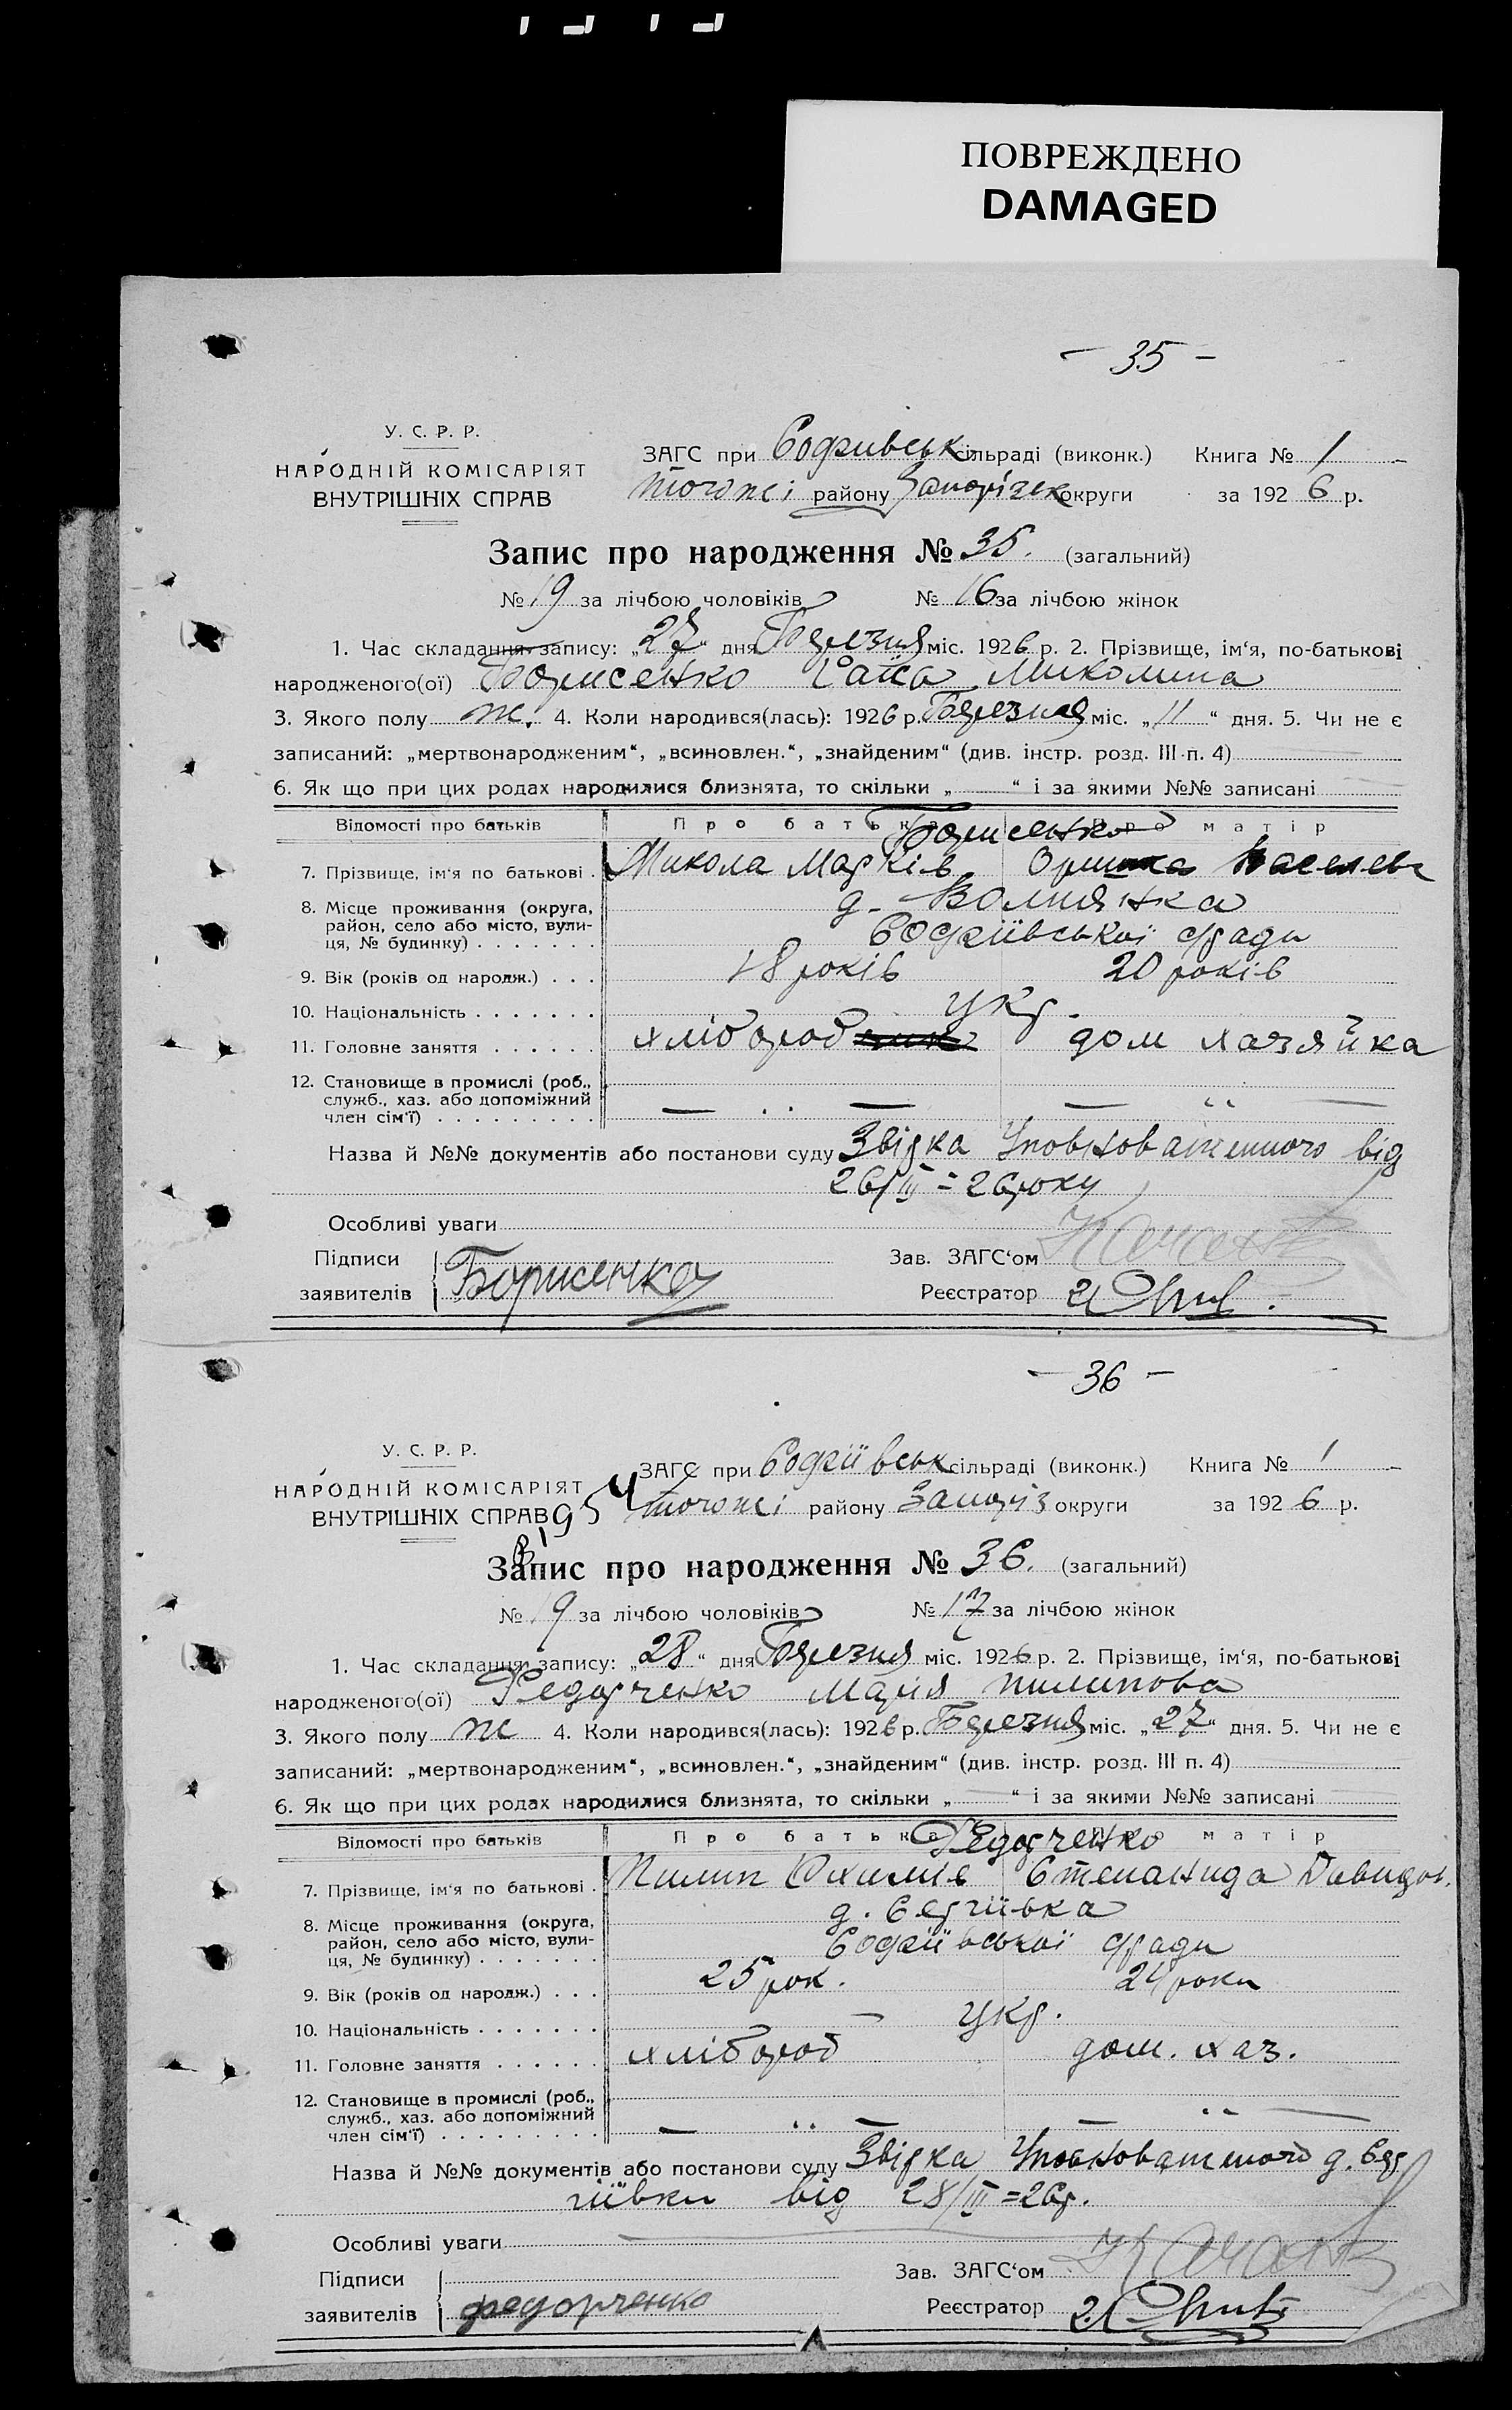 ПОВРЕЖДЕНО
DAMAGED
— 35 —
У. С. Р. Р.
НАРОДНІЙ КОМІСАРІЯТ
ВНУТРІШНІХ СПРАВ
ЗАГС при Софіивськ сільраді (виконк.) Книга № 1
району Запоріжск округи за 1926 р.
Запис про народження № 35. (загальний)
№ 19 за лічбою чоловіків № 16 за лічбою жінок
1. Час складання запису: „27“ дня Березня міс. 1926 р. 2. Прізвище, ім‘я, по-батькові
народженого(ої) Борисенко Раїса Миколина
3. Якого полу ж. 4. Коли народився(лась): 1926 р. Березня міс. „11“ дня. 5. Чи не є
записаний: „мертвонародженим“, „всиновлен.“, „знайденим“ (див. інстр. розд. III п. 4)
6. Як що при цих родах народилися близнята, то скільки „ “ і за якими №№ записані
Відомості про батьків Про батька Про матір
Борисенко
7. Прізвище, ім‘я по батькові . Микола Марків Василев
8. Місце проживання (округа, район, село або місто, вулиця, № будинку) . . . . . . . д. Волнянка
Софіївської с/ради
9. Вік (років од народж.) . . . 18 років 20 років
10. Національність . . . . . . . укр.
11. Головне заняття . . . . . . хлібороб дом хазяйка
12. Становище в промислі (роб.,
служб., хаз. або допоміжний
член сім‘ї) . . . . . . . . . — „ — — „ —
Назва й №№ документів або постанови суду Звідка Уповноваженного від
26/III = 26 року
Особливі уваги
Підписи
заявителів Борисенко
Зав. ЗАГС‘ом
Реєстратор
— 36 —
У. С. Р. Р.
НАРОДНІЙ КОМІСАРІЯТ
ВНУТРІШНІХ СПРАВ
ЗАГС при Софіївськ сільраді (виконк.) Книга № 1
району Запоріз округи за 1926 р.
Запис про народження № 36. (загальний)
№ 19 за лічбою чоловіків № 17 за лічбою жінок
1. Час складання запису: „28“ дня Березня міс. 1926 р. 2. Прізвище, ім‘я, по-батькові
народженого(ої) Федорченко Марія Пилипова
3. Якого полу ж 4. Коли народився(лась): 1926 р. Березня міс. „27“ дня. 5. Чи не є
записаний: „мертвонародженим“, „всиновлен.“, „знайденим“ (див. інстр. розд. III п. 4)
6. Як що при цих родах народилися близнята, то скільки „ “ і за якими №№ записані
Відомості про батьків Про батька Про матір
Федорченко
7. Прізвище, ім‘я по батькові . Пилип Юхимів Степанида Давидов.
8. Місце проживання (округа, район, село або місто, вулиця, № будинку) . . . . . . . д. Сергіївка
Софіївської с/ради
9. Вік (років од народж.) . . . 25 рок. 24 роки
10. Національність . . . . . . . укр.
11. Головне заняття . . . . . . хлібороб дом. хаз.
12. Становище в промислі (роб.,
служб., хаз. або допоміжний
член сім‘ї) . . . . . . . . . — „ — — „ —
Назва й №№ документів або постанови суду Звідка Уповноваженого д. Сер
гіївки від 28/III = 26 р.
Особливі уваги
Підписи
заявителів Федорченко
Зав. ЗАГС‘ом
Реєстратор